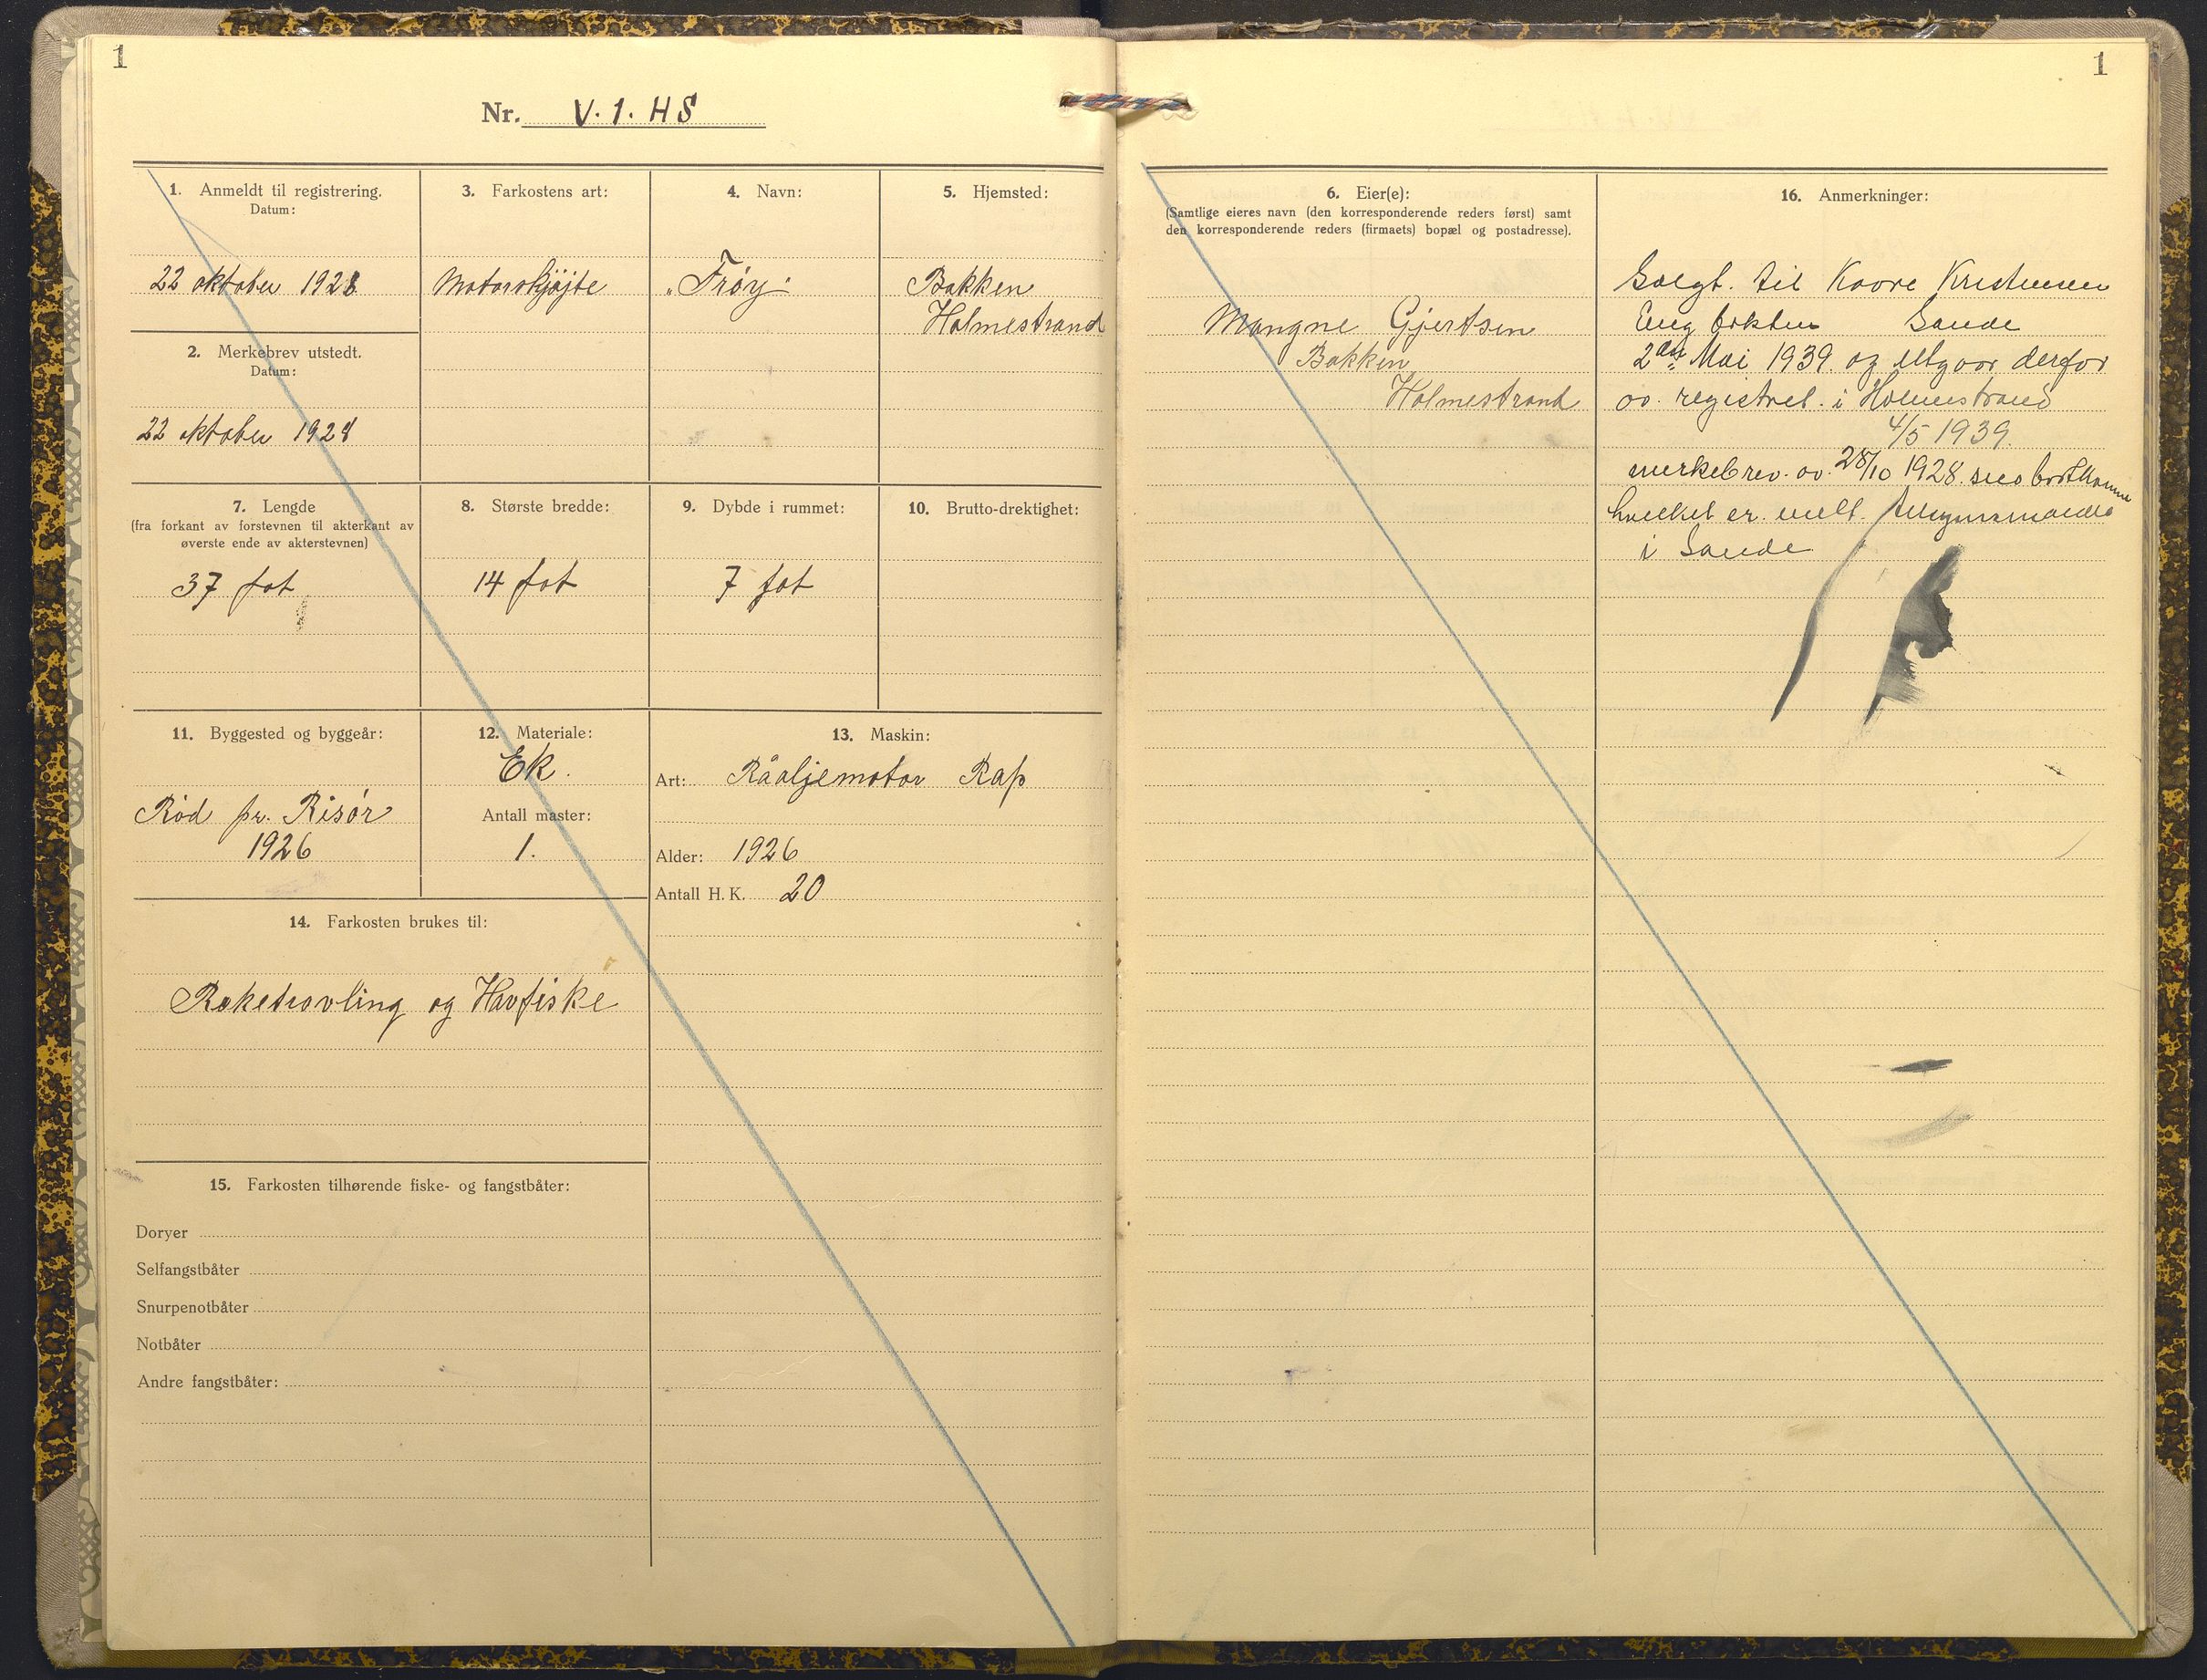 1
Nr. V. 1. HS
1. Anmeldt til registrering.
Datum:
22 oktober 1928
2. Merkebrev utstedt.
Datum:
22 oktober 1928
3. Farkostens art:
Motorskjøjte
4. Navn:
"Frøy"
5. Hjemsted:
Bakken
Holmestrand
7. Lengde
(fra forkant av forstevnen til akterkant av
øverste ende av akterstevnen)
37 fot
8. Største bredde:
14 fot
9. Dybde i rummet:
7 fot
10. Brutto-drektighet:
11. Byggested og byggeår:
Rød pr. Risør
1926
12. Materiale:
Ek.
Antall master:
1.
13. Maskin:
Art: Råoljemotor Rap
Alder: 1926
Antall H. K. 20
14. Farkosten brukes til:
Reketrovling og Havfiske
15. Farkosten tilhørende fiske- og fangstbåter:
Doryer
Selfangstbåter
Snurpenotbåter
Notbåter
Andre fangstbåter:
1
6. Eier(e):
(Samtlige eieres navn (den korresponderende reders først) samt
den korresponderende reders (firmaets) bopæl og postadresse).
Mangne Gjertsen
Bakken
Holmestrand
16. Anmerkninger:
Solgt. til Kaare Kristensen
Sande
2den Mai 1939. og utgaar derfor
av. registret. i Holmestrand
4/5 1939.
merkebrev. av. 28/10 1928. bortkomme
hvilket er. melt. Tilsynsmanden
i Sande